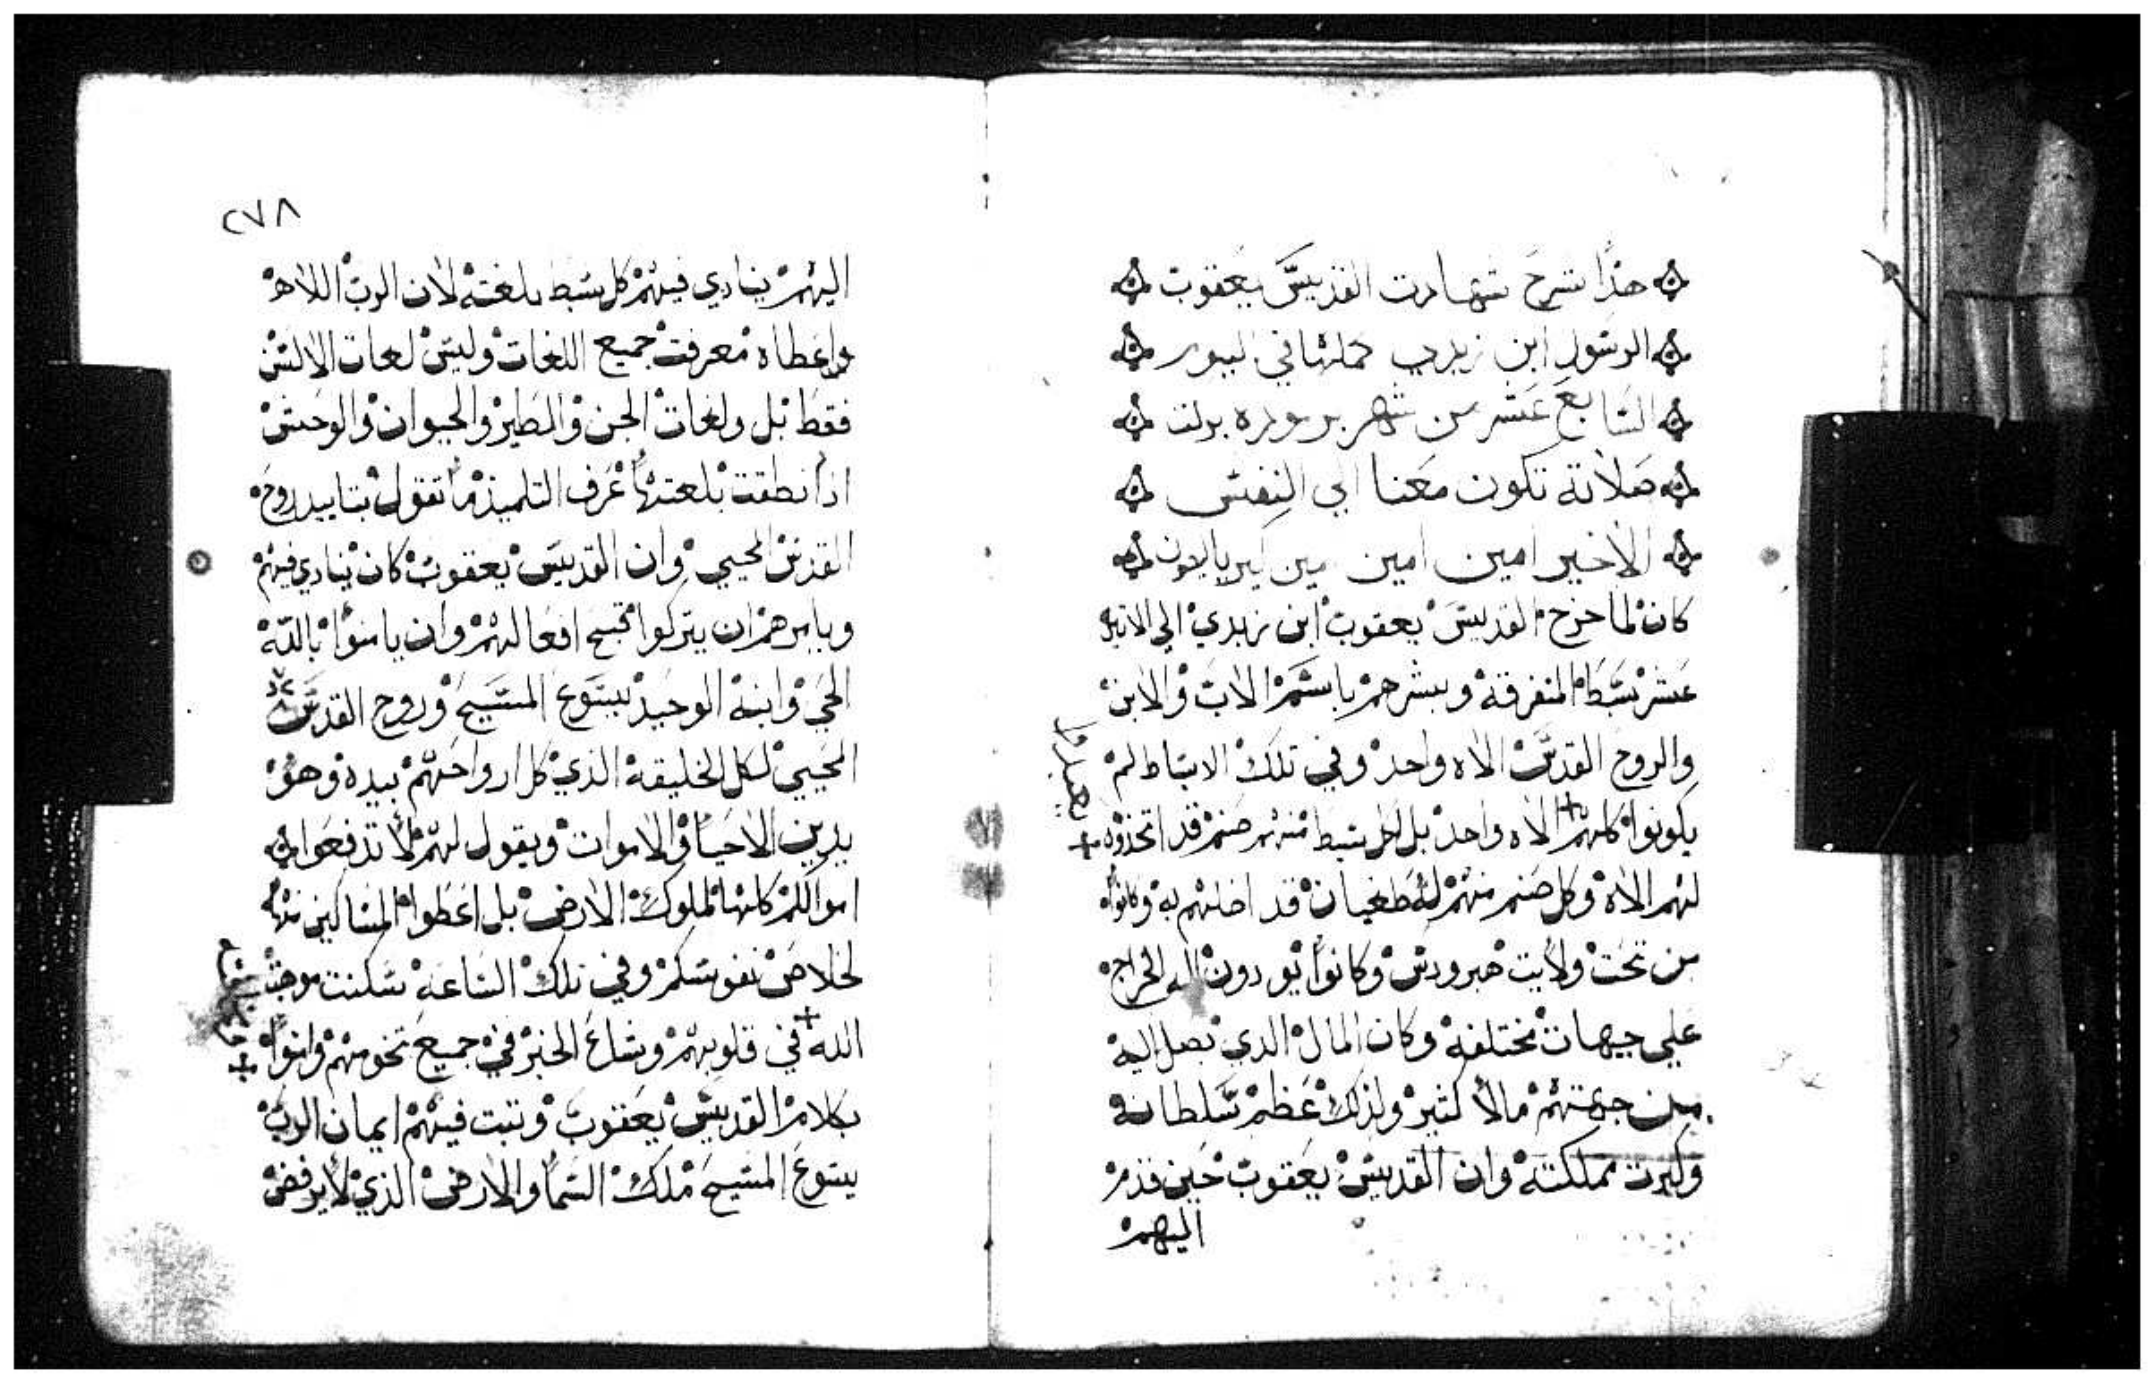 هذا شرح شهادت القديس يعقوب
الرسول ابن زبدي كملها في اليوم
السابع عشر من شهر برموده بركت
صلاته تكون معنا الي النفس
الاخير امين امين امين كيرياليسون
كان لما خرج القديس يعقوب ابن زبدي الي الاثني
عشر سبط المتفرقة وبشرهم باسم الاب والابن
والروح القدس الاه واحد وفي تلك الاسباط لم
يكونوا كلهم الاه واحد بل لكل سبط منهم صنم قد اتخذوه
يعبدوا
لهم الاه وكل صنم منهم له طغيان قد اضلهم به وكانوا
من تحت ولايت هيرودس وكانوا يوردون اليه الخراج
علي جيهات مختلفة وكان المال الدي يصل اليه
من جهتهم مالا كثير ولذلك عظم سلطانه
وكبرت مملكته وان القديس يعقوب حين قدم
اليهم
٢٧٨
اليهم ينادي فيهم كل سبط بلغته لان الرب اللاه
واعطاه معرفت جميع اللغات وليس لغات الالسن
فقط بل ولغات الجن والطير والحيوان والوحش
اذا نطقت بلغتها عرف التلميذ ما تقول بتاييد روح
القدس المحيي وان القديس يعقوب كان ينادي فيهم
ويامرهم ان يتركوا قبيح افعالهم وان يامنوا بالله
الحي وابنه الوحيد يسوع المسيح وروح القدس
المحيي لكل الخليقه الذي كل ارواحهم بيده وهو
يدين الاحيا والاموات ويقول لهم لا تدفعوا
اموالكم كلها لملوك الارض بل اعطوا المساكين منها
لخلاص نفوسكم وفي تلك الساعة سكنت
الله في قلوبهم وشاع الخبر في جميع تخومهم وامنوا
بكلام القديس يعقوب وتبت فيهم ايمان الرب
يسوع المسيح ملك السما والارض الذي لا يرفض